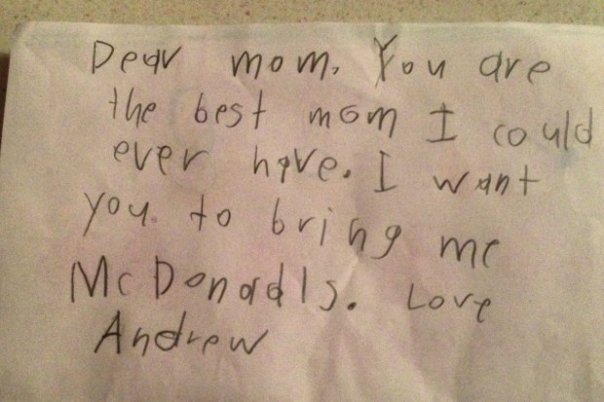 Dear mom. You are
the best mom I could
ever have. I want
you to bring me
McDonadls. Love
Andrew